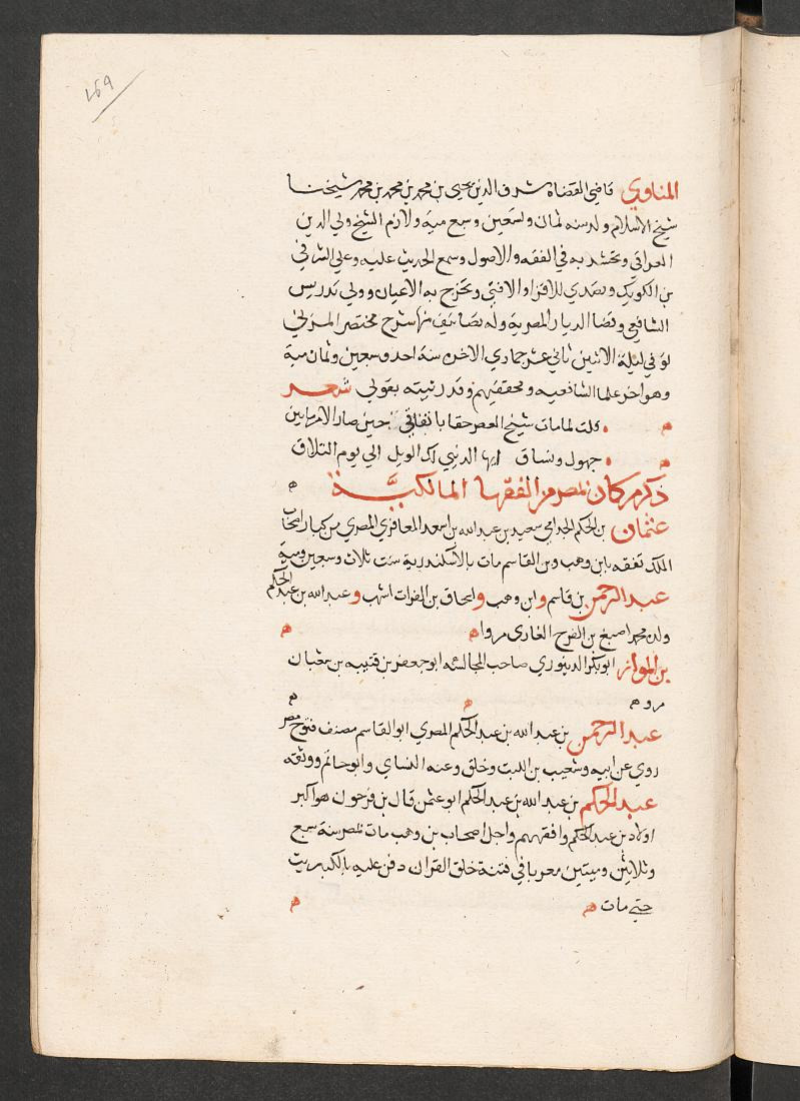 169
المناوي قاضي القضاة شرف الدين يحيى بن محمد بن محمد بن محمد شيخنا
شيخ الاسلام ولد سنه ثمان وتسعين وسبع ميه ولازم الشيخ ولي الدين
العراقي وتخرج به في الفقه والاصول وسمع الحديث عليه وعلي الشرف
بن الكويك وتصدي للاقرا والافتي وتخرج به الاعيان وولي تدريس
الشافعي وقضا الديار المصرية وله تصانيف منها شرح مختصر المزني
توفي ليلة الاثنين ثاني عشر جمادي الاخره سنة احد وسبعين وثمان مية
وهو اخر علما الشافعيه ومحققيهم وقد رثيته بقولي شعر
قلت لما مات شيخ العصر حقا باتفاق حين صار الامر ما بين
جهول وفساق ايها الدنيي لك الويل الي يوم التلاق
ذكر من كان بمصر من الفقها المالكية
عثمان بن الحكم الجذامي سعيد بن عبد الله بن اسعد المعافري المصري من كبار اصحاب
الملك تفقه بابن وهب وبن القاسم مات بالاسكندرية سنت ثلاث وسبعين ومية
عبد الرحمن بن قاسم وابن وهب واسحاق بن الفرات اشهب وعبد الله بن عبد الحكم
ولده محمد اصبغ بن الفرج الغازي مروا
بن المواز ابو بكر الدينوري صاحب المجالسه ابو جعفر بن قتيبه بن شعبان
مروه
عبد الرحمن بن عبد الله بن عبد الحكم المصري ابو القاسم مصنف فتوح مصر
روي عن ابيه وشعيب بن الليث وخلق وعنه النساي وابو حاتم ووثقه
عبد الحكم بن عبد الله بن عبد الحكم ابو عثمن قال بن فرحون هو اكبر
اولاد بن عبد الحكم وافقههم واجل اصحاب بن وهب مات بمصر سنة سبع
وثلاثين وميتين معربا في فتنة خلق القران دخن عليه بالكبريت
حتي مات